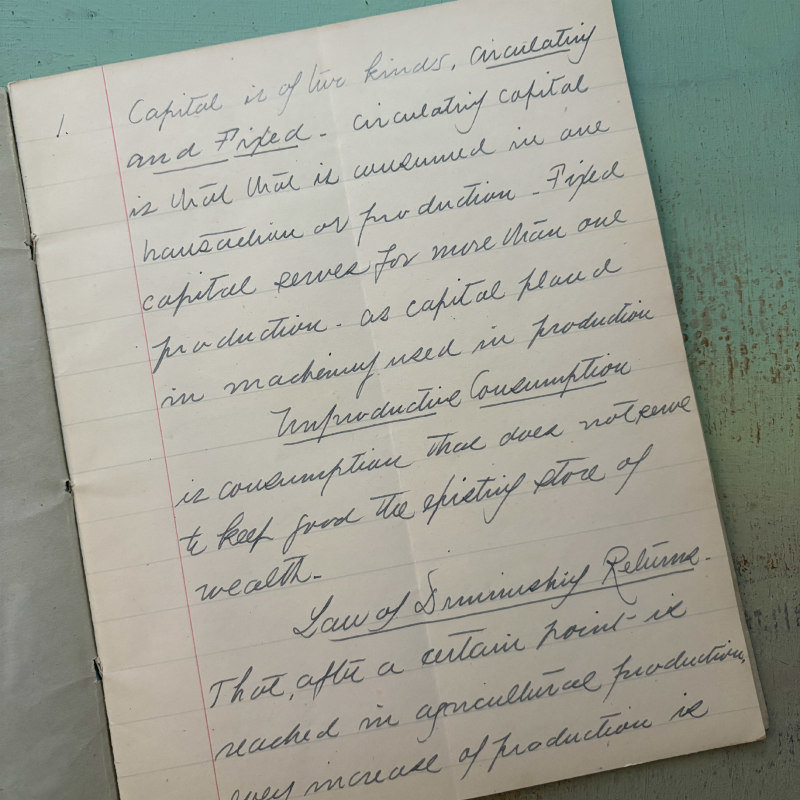 1. Capital is of two kinds, Circulating
and Fixed - Circulating capital
is that that is consumed in one
transaction or production - Fixed
capital serves for more than one
production - as capital placed
in machinery used in production
Unproductive Consumption
is consumption that does not serve
to keep good the existing store of
wealth -
Law of Diminishing Returns -
That, after a certain point is
reached in agricultural production,
every increase of production is